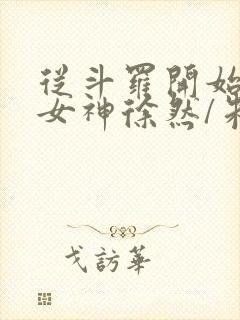 從斗羅開始
女神徐然/朱
戈訪華